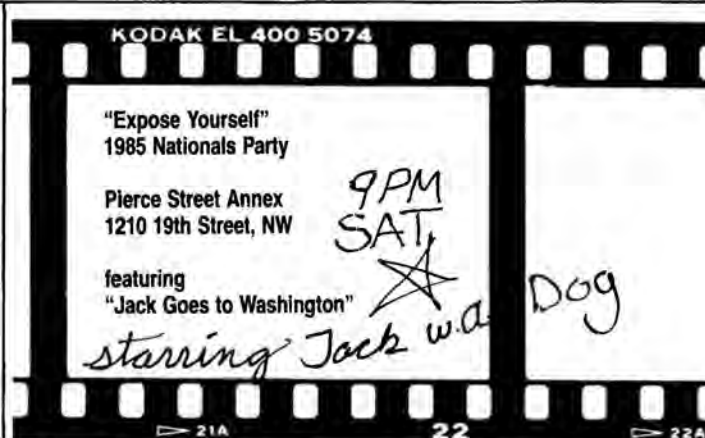 KODAK EL 400 5074
"Expose Yourself"
1985 Nationals Party
Pierce Street Annex
1210 19th Street, NW
9PM
SAT.
featuring
"Jack Goes to Washington"
starring Jack w.a. Dog
21A 22 22A